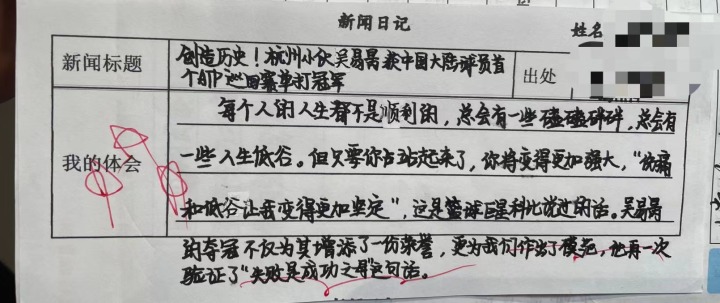 新闻日记
姓名
新闻标题
创造历史！杭州小伙吴易昺获中国大陆球员首
个ATP巡回赛单打冠军
出处
我的体会
每个人的人生都不是顺利的，总会有一些磕磕碰碰，总会有
一些人生低谷。但只要你占站起来了，你将变得更加强大，“伤痛
和低谷让我变得更加坚定”，这是篮球巨星科比说过的话。吴易昺
的夺冠不仅为其增添了一份荣誉，更为我们作出了模范，他再一次
验证了“失败是成功之母”这句话。